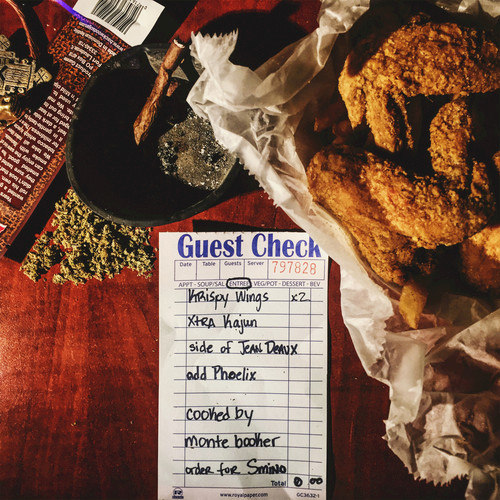 Guest Check
Date Table Guests Server 797828
APPT - SOUP/SAL - ENTREE - VEG/POT - DESSERT - BEV
Krispy Wings x2
Xtra Kajun
side of Jean Deaux
add Phoelix
cooked by
monte booker
order for Smino
Total 0 00
www.royalpaper.com GC3632-1